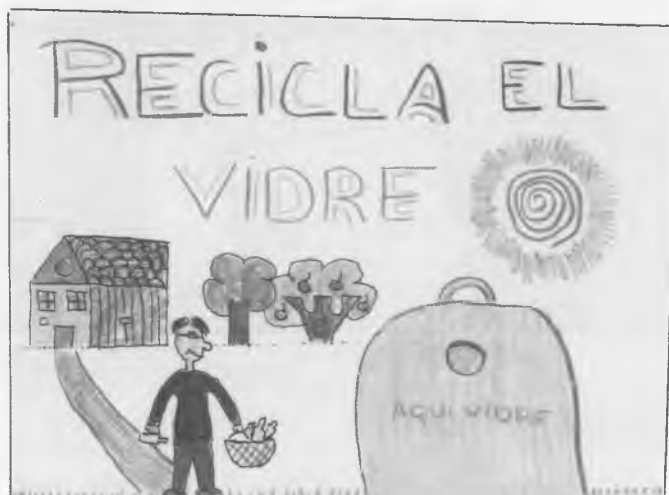 RECICLA EL
VIDRE
AQUI VIDRE